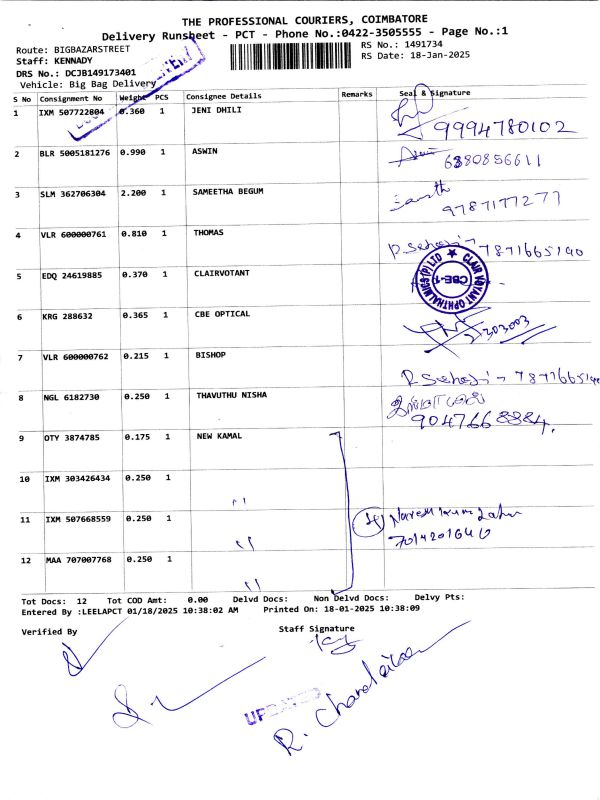 THE PROFESSIONAL COURIERS, COIMBATORE
Delivery Runsheet - PCT - Phone No.:0422-3505555 - Page No.:1
Route: BIGBAZARSTREET
RS No.: 1491734
Staff: KENNADY
RS Date: 18-Jan-2025
DRS No.: DCJB149173401
Vehicle: Big Bag Delivery
S No Consignment No Weight PCS Consignee Details Remarks Seal & Signature
1 IXM 507722804 0.360 1 JENI DHILI
9994780102
2 BLR 5005181276 0.990 1 ASWIN
6380856611
3 SLM 362706304 2.200 1 SAMEETHA BEGUM
9787177277
4 VLR 600000761 0.810 1 THOMAS
7871665190
5 EDQ 24619885 0.370 1 CLAIRVOTANT
CLAIR VOYANT OPHTHALMICS (P) LTD
CBE-1
6 KRG 288632 0.365 1 CBE OPTICAL
2303003
7 VLR 600000762 0.215 1 BISHOP
7871665190
8 NGL 6182730 0.250 1 THAVUTHU NISHA
9047668884.
9 OTY 3874785 0.175 1 NEW KAMAL
10 IXM 303426434 0.250 1 "
11 IXM 507668559 0.250 1 "
7014201640
12 MAA 707007768 0.250 1 "
Tot Docs: 12 Tot COD Amt: 0.00 Delvd Docs: Non Delvd Docs: Delvy Pts:
Entered By :LEELAPCT 01/18/2025 10:38:02 AM Printed On: 18-01-2025 10:38:09
Verified By
Staff Signature
UPDATED